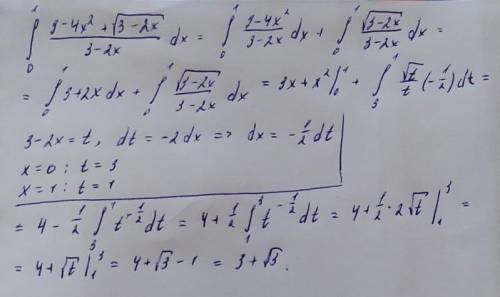 ∫₀¹ (9-4x² + √(3-2x))/(3-2x) dx = ∫₀¹ (9-4x²)/(3-2x) dx + ∫₀¹ √(3-2x)/(3-2x) dx =
= ∫₀¹ 3+2x dx + ∫₀¹ √(3-2x)/(3-2x) dx = 3x+x²|₀¹ + ∫₃¹ √t/t (-1/2) dt =
3-2x=t, dt=-2dx => dx=-1/2 dt
x=0: t=3
x=1: t=1
= 4 - 1/2 ∫₃¹ t^(-1/2) dt = 4+1/2 ∫₁³ t^(-1/2) dt = 4+1/2·2√t |₁³ =
= 4+√t |₁³ = 4+√3-1 = 3+√3.